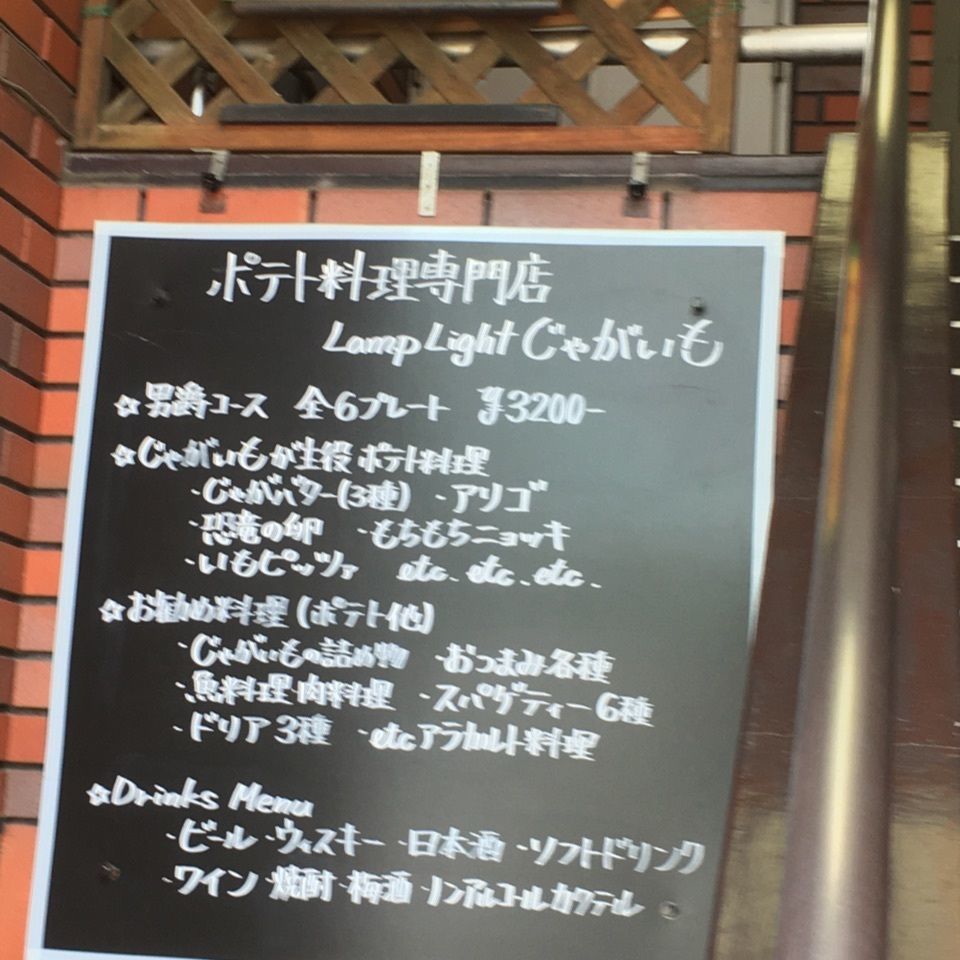 ポテト料理専門店
Lamp Light じゃがいも
☆男爵コース 全6プレート ¥3200-
☆じゃがいもが主役 ポテト料理
・じゃがバター(3種) ・アリゴ
・恐竜の卵 ・もちもちニョッキ
・いもピッツァ etc. etc. etc.
☆お勧め料理(ポテト他)
・じゃがいもの詰め物 ・おつまみ各種
・魚料理・肉料理 ・スパゲティー6種
・ドリア3種 ・etcアラカルト料理
☆Drinks Menu
・ビール ・ウィスキー ・日本酒 ・ソフトドリンク
・ワイン 焼酎 ・梅酒 ・ノンアルコールカクテル